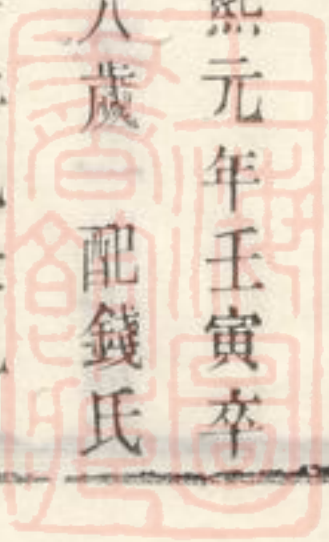 熙元年壬寅卒
八歲 配錢氏